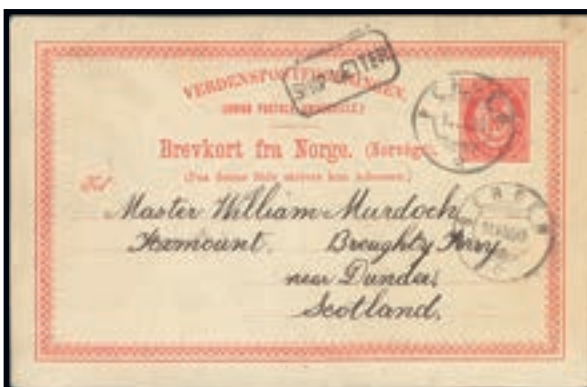 VERDENSPOSTFORENINGEN.
(UNION POSTALE UNIVERSELLE.)
SHIP LETTER
Brevkort fra Norge. (Norvège.)
(Paa denne Side skrives kun Adressen.)
Til
Master William Murdoch
Broughty Ferry
near Dundee,
Scotland,
BERGEN